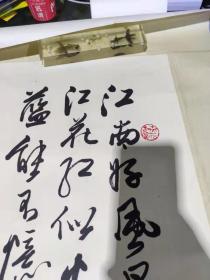 江南好风景
江花红似火
蓝能不忆